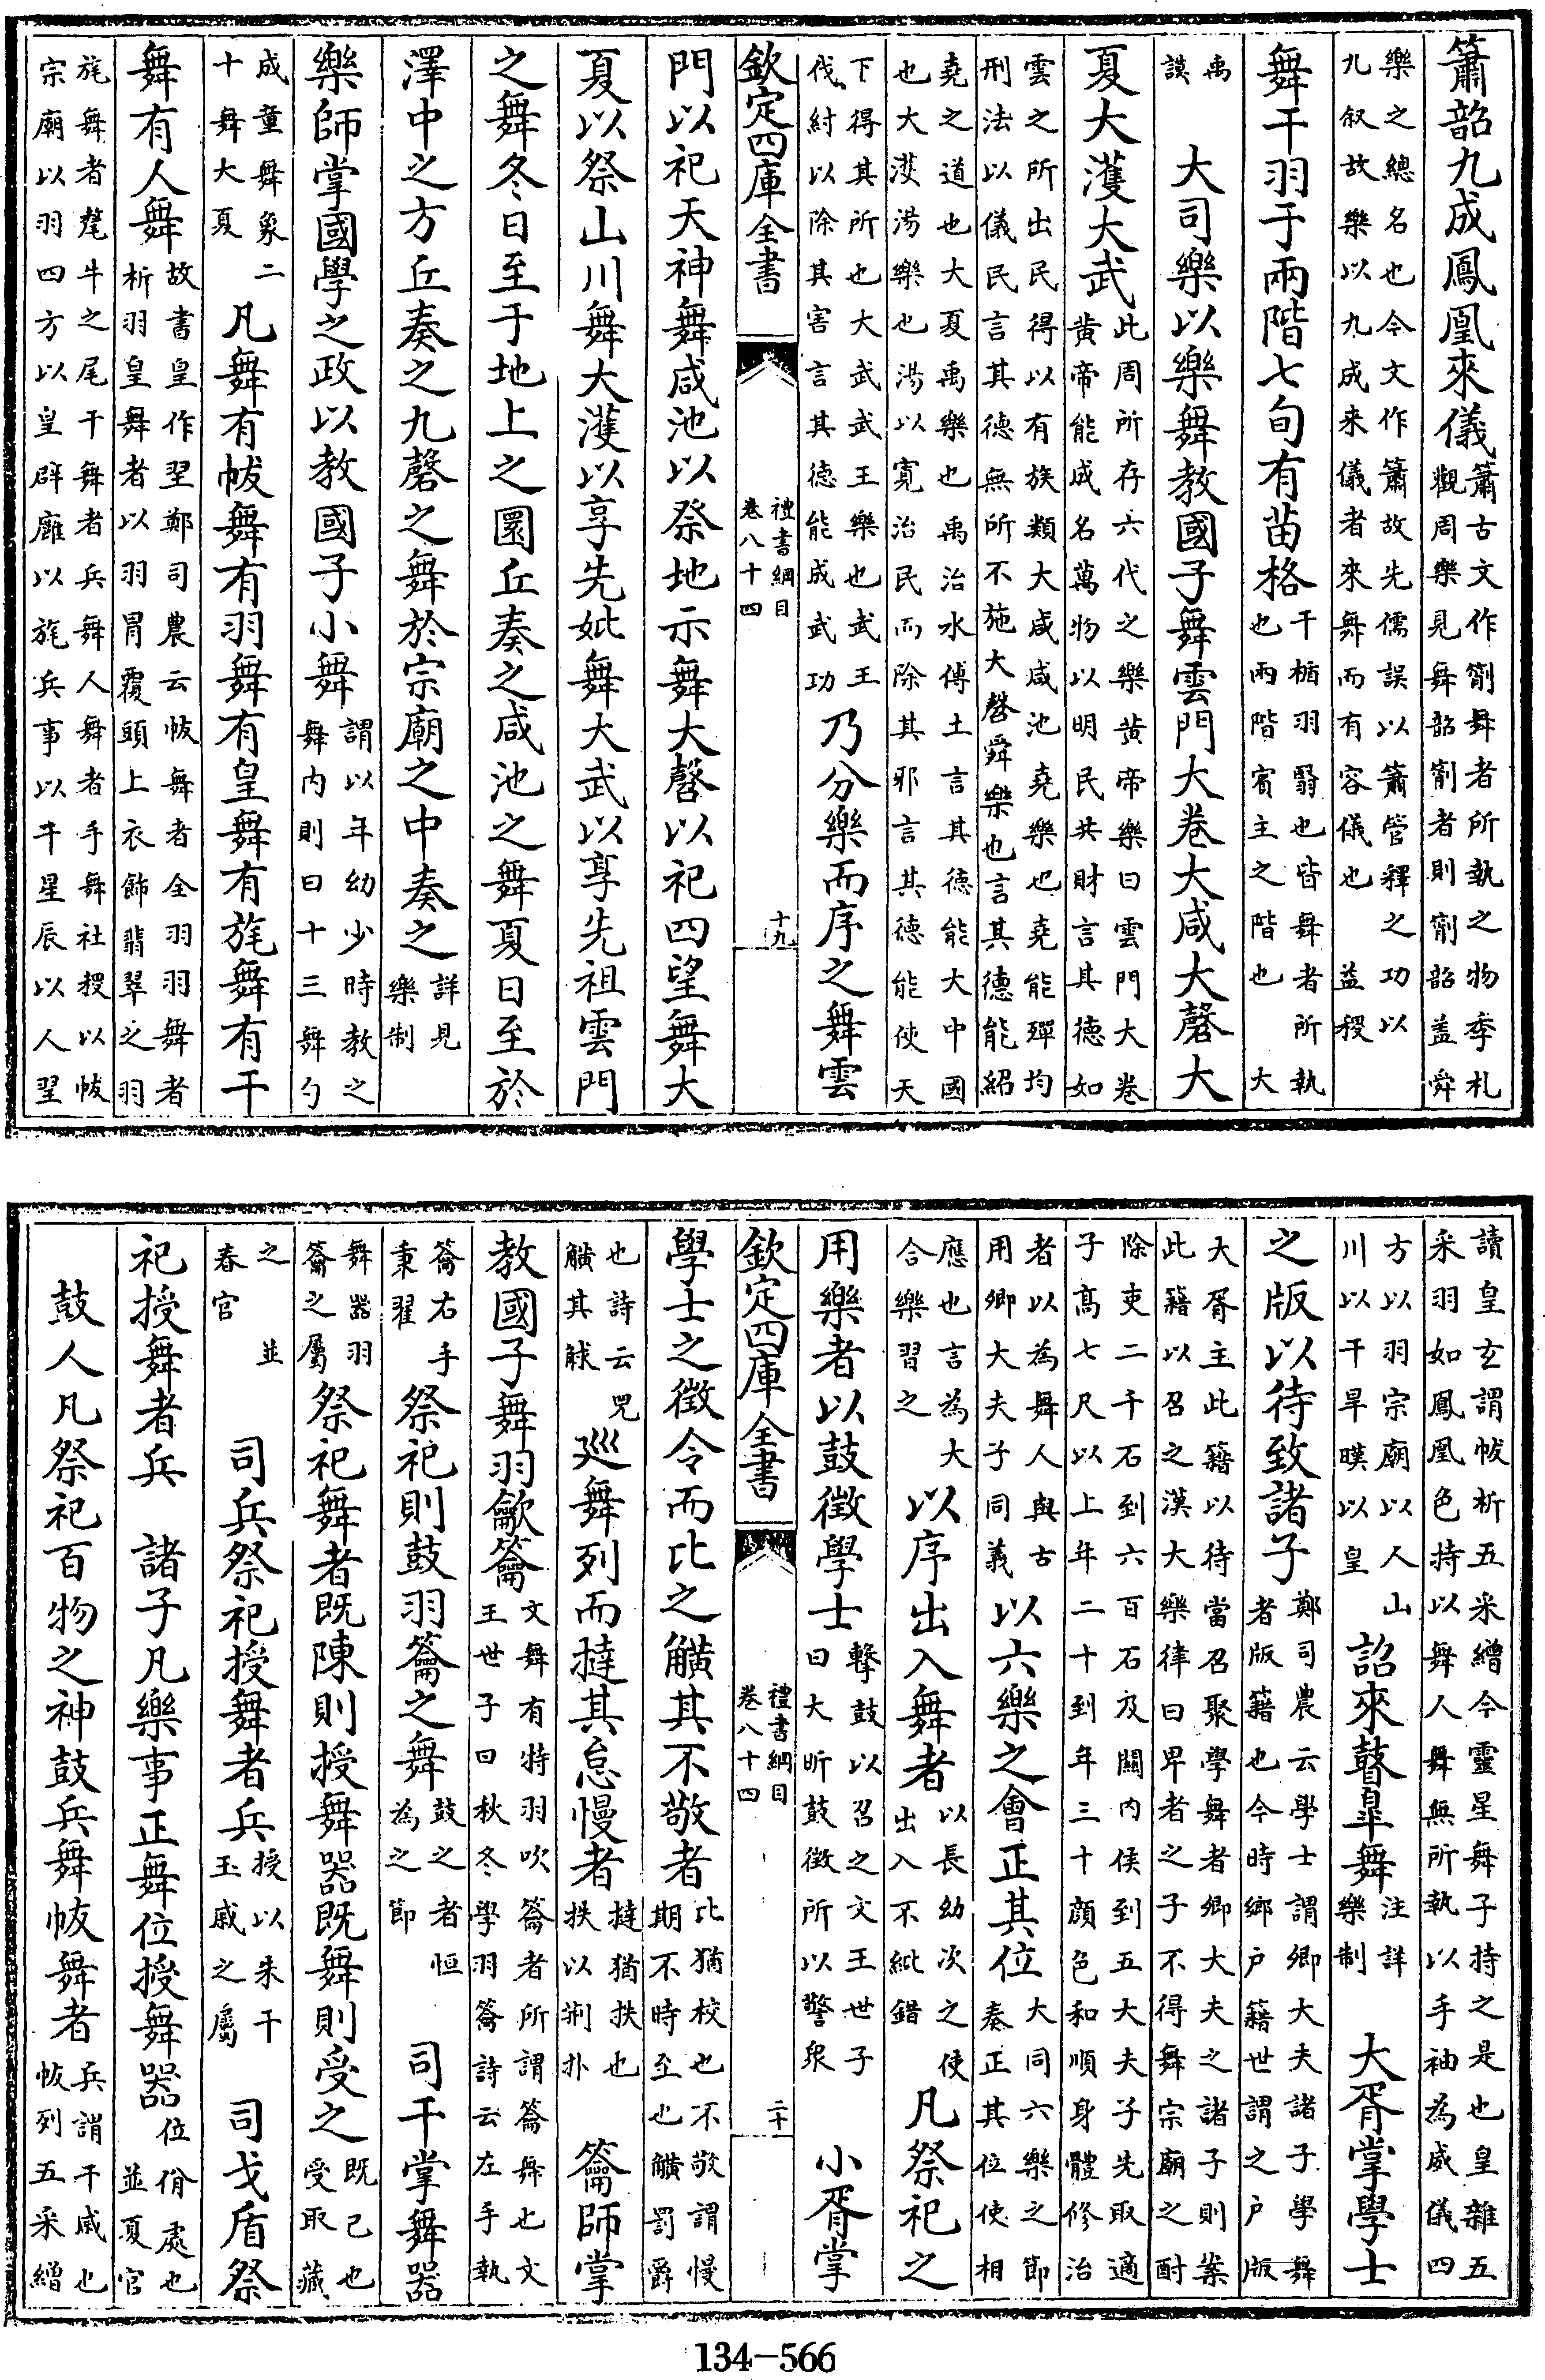 簫韶九成鳳凰來儀簫古文作箾舞者所執之物季札觀周樂見舞韶箾者則箾韶盖舜
樂之總名也今文作簫故先儒誤以簫管釋之功以九叙故樂以九成来儀者來舞而有容儀也益稷
舞干羽于兩階七旬有苗格干楯羽翳也皆舞者所執也兩階賓主之階也大
禹謨大司樂以樂舞教國子舞雲門大卷大咸大磬大
夏大濩大武此周所存六代之樂黄帝樂曰雲門大卷黄帝能成名萬物以明民共財言其德如
雲之所出民得以有族類大咸咸池堯樂也堯能殫均刑法以儀民言其德無所不施大磬舜樂也言其德能紹
堯之道也大夏禹樂也禹治水傅土言其德能大中國也大濩湯樂也湯以寛治民而除其邪言其德能使天
下得其所也大武武王樂也武王伐紂以除其害言其德能成武功乃分樂而序之舞雲
欽定四庫全書 禮書綱目卷八十四 十九
門以祀天神舞咸池以祭地示舞大磬以祀四望舞大
夏以祭山川舞大濩以享先妣舞大武以享先祖雲門
之舞冬日至于地上之圜丘奏之咸池之舞夏日至於
澤中之方丘奏之九磬之舞於宗廟之中奏之詳見樂制
樂師掌國學之政以教國子小舞謂以年幼少時教之舞内則曰十三舞勺
成童舞象二十舞大夏凡舞有帗舞有羽舞有皇舞有旄舞有干
舞有人舞故書皇作翌鄭司農云帗舞者全羽羽舞者析羽皇舞者以羽冒覆頭上衣飾翡翠之羽
旄舞者氂牛之尾干舞者兵舞人舞者手舞社稷以帗宗廟以羽四方以皇辟廱以旄兵事以干星辰以人翌
讀皇玄謂帗析五采繒今靈星舞子持之是也皇雜五采羽如鳳凰色持以舞人舞無所執以手袖為威儀四
方以羽宗廟以人山川以干旱暵以皇詔來瞽皐舞注詳樂制大胥掌學士
之版以待致諸子鄭司農云學士謂卿大夫諸子學舞者版籍也今時鄉户籍世謂之户版
大胥主此籍以待當召聚學舞者卿大夫之諸子則案此籍以召之漢大樂律曰卑者之子不得舞宗廟之酎
除吏二千石到六百石及關内侯到五大夫子先取適子高七尺以上年二十到年三十顔色和順身體修治
者以為舞人與古用卿大夫子同義以六樂之會正其位大同六樂之節奏正其位使相
應也言為大合樂習之以序出入舞者以長幼次之使出入不紕錯凡祭祀之
用樂者以鼓徴學士擊鼓以召之文王世子曰大昕鼓徴所以警衆小胥掌
欽定四庫全書 禮書綱目卷八十四 二十
學士之徴令而比之觵其不敬者比猶校也不敬謂慢期不時至也觵罰爵
也詩云兕觵其觩巡舞列而撻其怠慢者撻猶抶也抶以荆扑籥師掌
教國子舞羽龡籥文舞有特羽吹籥者所謂籥舞也文王世子曰秋冬學羽籥詩云左手執
籥右手秉翟祭祀則鼓羽籥之舞鼓之者恒為之節司干掌舞器
舞器羽籥之屬祭祀舞者既陳則授舞器既舞則受之既已也受取藏
之並春官司兵祭祀授舞者兵授以朱干玉戚之屬司戈盾祭
祀授舞者兵諸子凡樂事正舞位授舞器位佾處也並夏官
鼓人凡祭祀百物之神鼓兵舞帗舞者兵謂干戚也帗列五采繒
134-566